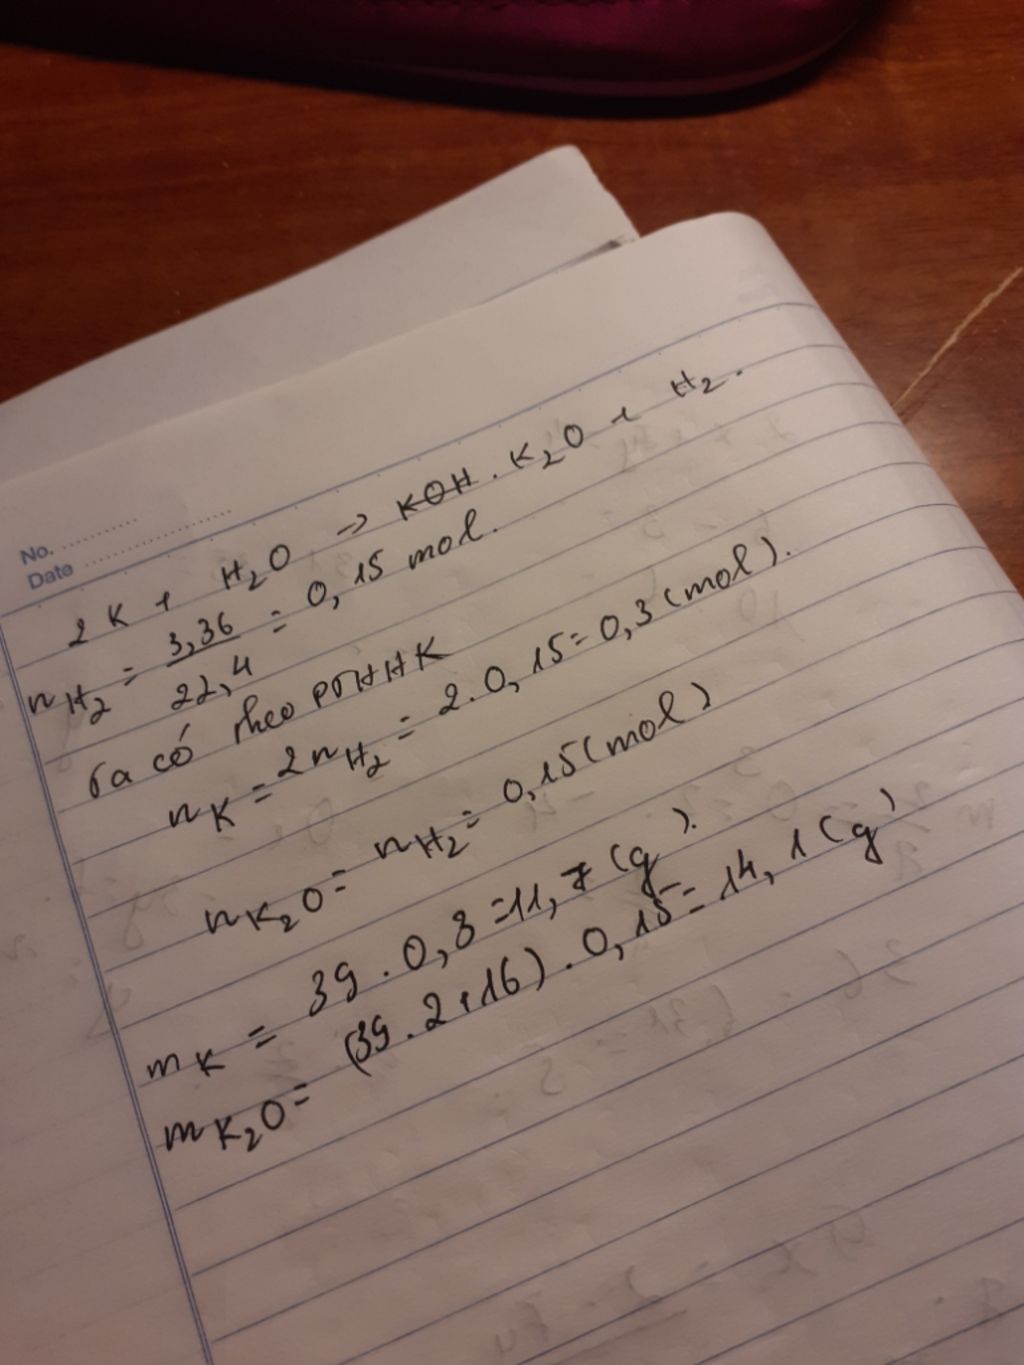 No. ..............
Date ..........................
2K + H₂O → KOH . K₂O + H₂.
nH₂ = 3,36/22,4 = 0,15 mol.
Ta có theo PTHHK
nK = 2nH₂ = 2.0,15 = 0,3 (mol).
nK₂O = nH₂ = 0,15 (mol)
mK = 39 . 0,3 = 11,7 (g).
mK₂O = (39 . 2 + 16) . 0,15 = 14,1 (g)